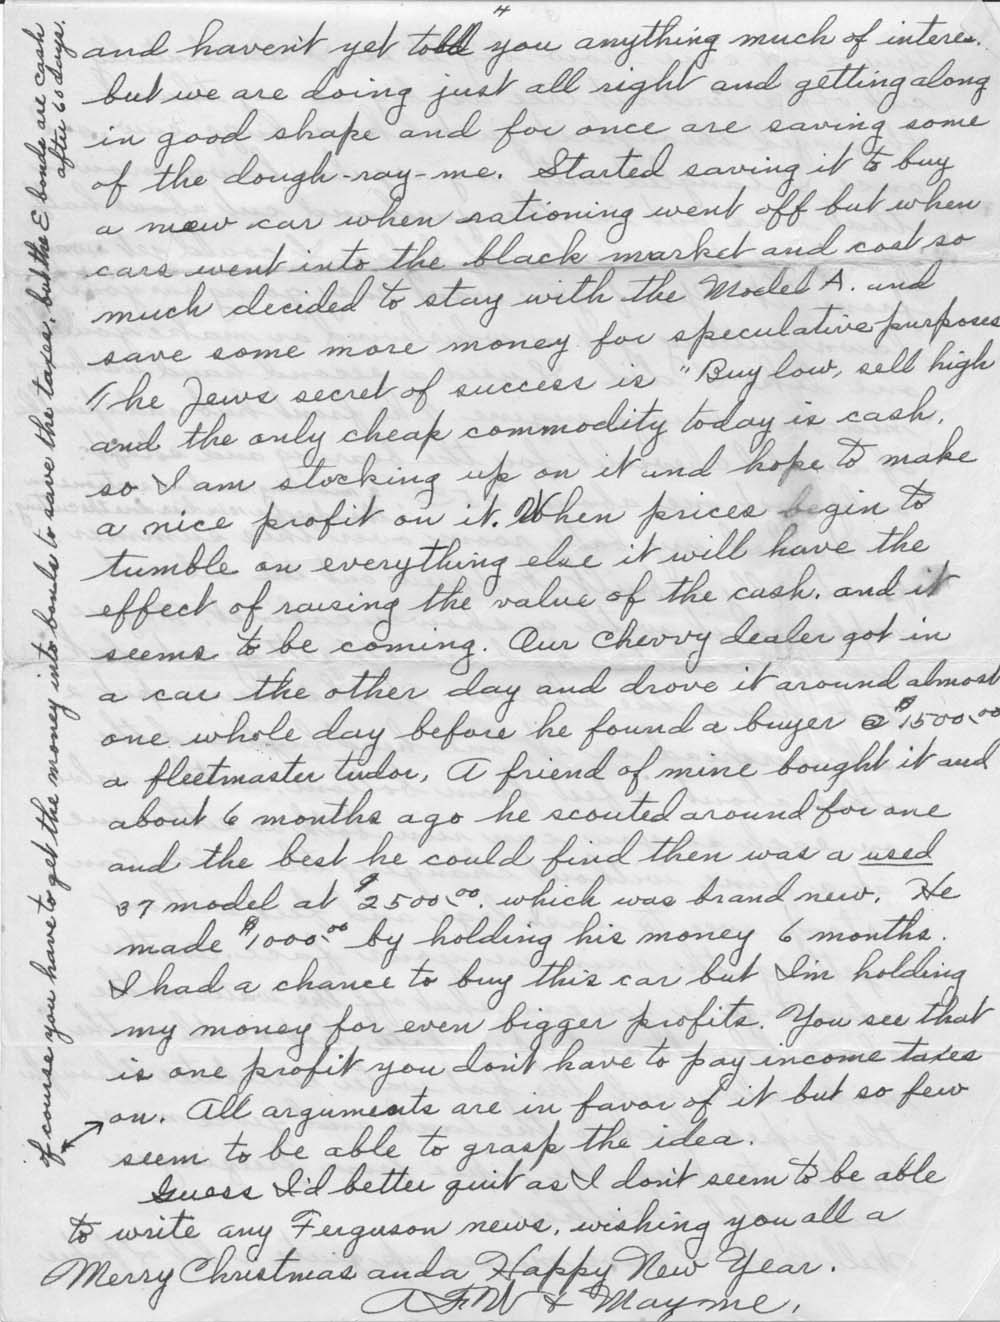 4
and haven't yet told you anything much of interes.
but we are doing just all right and getting along
in good shape and for once are saving some
of the dough-ray-me. Started saving it to buy
a new car when rationing went off but when
cars went into the black market and cost so
much decided to stay with the Model A. and
save some more money for speculative purposes
The Jews secret of success is "Buy low, sell high
and the only cheap commodity today is cash.
so I am stocking up on it and hope to make
a nice profit on it. When prices begin to
tumble on everything else it will have the
effect of raising the value of the cash. and it
seems to be coming. Our Chevvy dealer got in
a car the other day and drove it around almost
one whole day before he found a buyer @ $1500.00
a fleetmaster tudor. A friend of mine bought it and
about 6 months ago he scouted around for one
and the best he could find then was a used
37 model at $2500.00. which was brand new. He
made $1000.00 by holding his money 6 months.
I had a chance to buy this car but I'm holding
my money for even bigger profits. You see that
is one profit you don't have to pay income taxes
on. All arguments are in favor of it but so few
seem to be able to grasp the idea.
Guess I'd better quit as I don't seem to be able
to write any Ferguson news, wishing you all a
Merry Christmas and a Happy New Year.
A.F.W & Mayme.
of course you have to get the money into bonds to save the taxes, but the E bonds are cash
after 60 days.